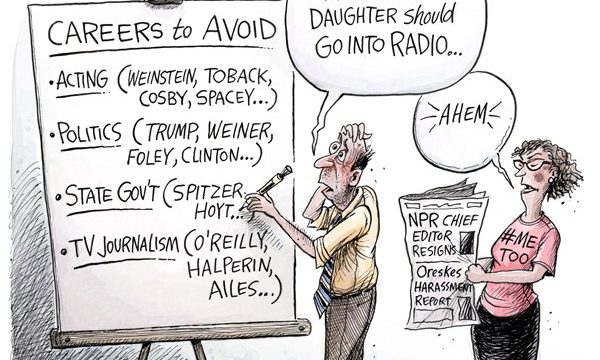 CAREERS to AVOID
• ACTING (WEINSTEIN, TOBACK,
COSBY, SPACEY...)
• POLITICS (TRUMP, WEINER,
FOLEY, CLINTON...)
• STATE GOV'T (SPITZER,
HOYT...
• TV JOURNALISM (O'REILLY,
HALPERIN,
AILES...)
DAUGHTER should
GO INTO RADIO...
AHEM
NPR CHIEF
EDITOR
RESIGNS
Oreskes
HARASSMENT
REPORT
#ME
TOO